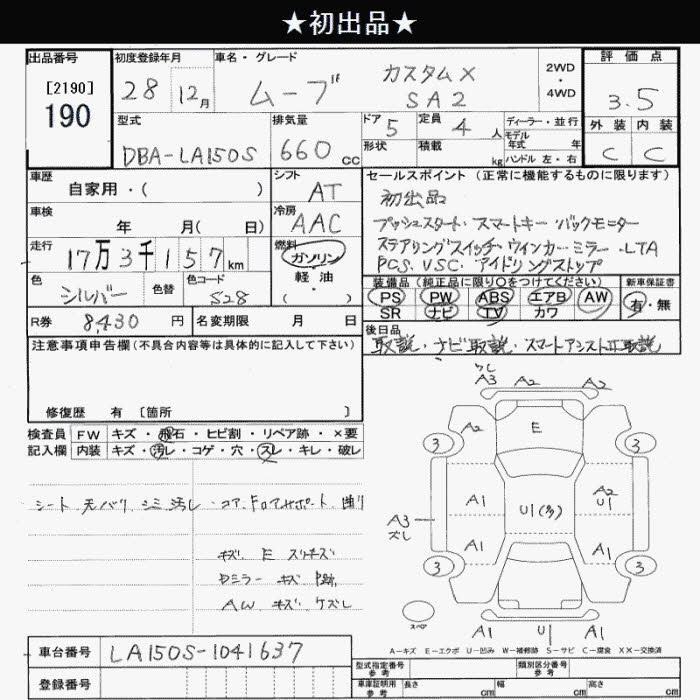 ★初出品★
出品番号
[2190]
190
初度登録年月
28 12月
車名・グレード
ムーブ カスタムX
SA2
2WD
・
4WD
評価点
3.5
外装 内装
C C
型式
DBA-LA150S
排気量
660 cc
ドア 5
形状
定員 4 人
積載 kg
ディーラー・並行
モデル
年式 年
ハンドル 左・右
車歴
自家用・( )
シフト
AT
車検
年 月( 日)
冷房
AAC
走行
17万3千157km
燃料
ガソリン
軽・油
( )
色
シルバー
色替
色コード
S28
R券 8,430 円
名変期限 月 日
セールスポイント (正常に機能するものに限ります)
初出品
プッシュスタート・スマートキー・バックモニター
ステアリングスイッチ・ウインカーミラー・LTA
PCS.VSC.アイドリングストップ
装備品 (純正品に限り○をつけてください)
PS PW ABS エアB AW
SR ナビ TV カワ
新車保証書
有・無
後日品
取説・ナビ取説・スマートアシスト取説
注意事項申告欄(不具合内容等は具体的に記入して下さい)
修復歴 有 [箇所 ]
検査員
記入欄
FW キズ・飛石・ヒビ割・リペア跡・×要
内装 キズ・汚レ・コゲ・穴・スレ・キレ・破レ
シート 天バリ シミ 汚レ・コア.Fロアサポート 曲り
キズ E スリキズ
Dミラー キズ P跡
AW キズ ケズレ
A3 A2 A2
A2 E
3 3
A1 U1(多) A2
U1
A3
ズレ
A1 A1
3 3
スペア
A1 U1 A1
A-キズ E-エクボ U-凹み W-補修跡 S-サビ C-腐食 XX-交換済
車台番号 LA150S-1041637
登録番号
型式指定番号
参考
類別区分番号
参考
車庫証明用
参考
長さ cm 幅 cm 高さ cm